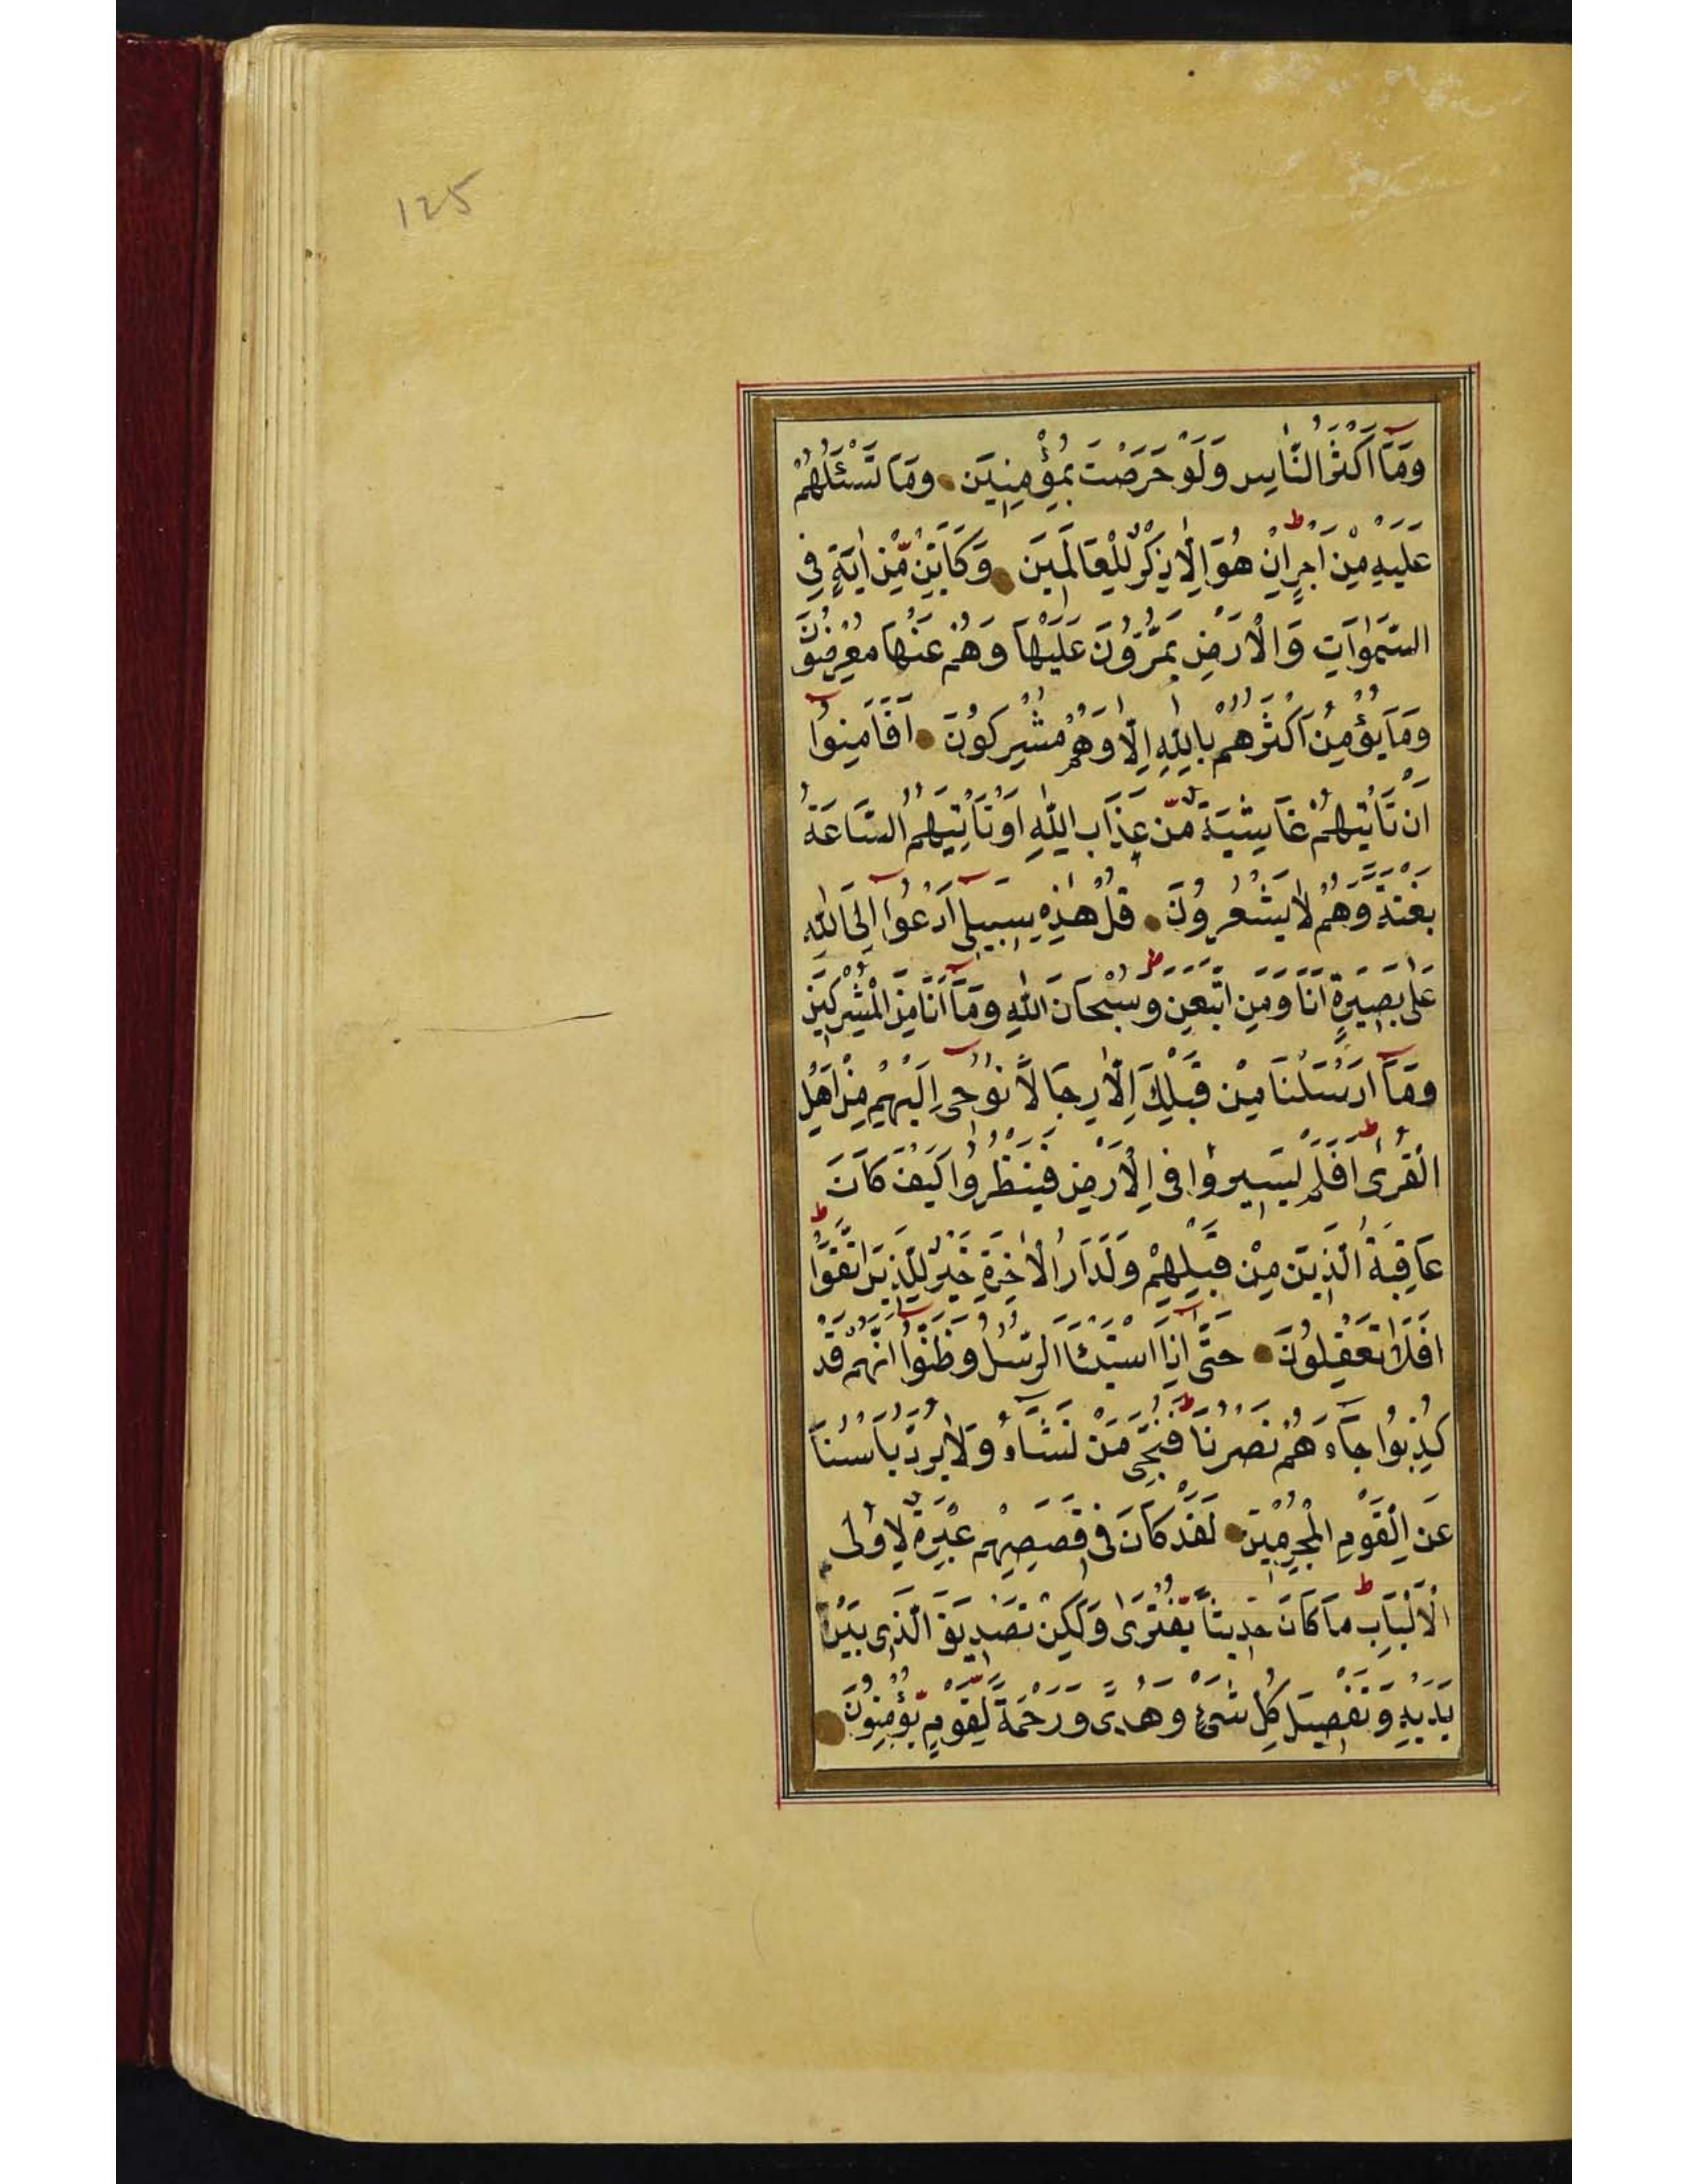 125
وَمَآ اَكْثَرُ النَّاسِ وَلَوْ حَرَصْتَ بِمُؤْمِنِيَنَ وَمَا تَسْئَلُهُمْ
عَلَيْهِ مِنْ اَجْرٍ اِنْ هُوَ اِلَّا ذِكْرٌ لِلْعَالَمِيَنَ وَكَاَيِّنْ مِّنْ اٰيَةٍ فِى
السَّمٰوَاتِ وَالْاَرْضِ يَمُرُّوُنَ عَلَيْهَا وَهُمْ عَنْهَا مُعْرِضُوُنَ
وَمَا يُؤْمِنُ اَكْثَرُهُمْ بِاللّٰهِ اِلَّا وَهُمْ مُشْرِكُوُنَ اَفَاَمِنُوآ
اَنْ تَأْتِيَهُمْ غَاشِيَةٌ مِّنْ عَذَابِ اللّٰهِ اَوْ تَأْتِيَهُمُ السَّاعَةُ
بَغْتَةً وَهُمْ لَا يَشْعُرُوُنَ قُلْ هٰذِهِ سَبِيلِىآ اَدْعُوآ اِلَى اللّٰهِ
عَلٰى بَصِيَرَةٍ اَنَا وَمَنِ اتَّبَعَنِ وَسُبْحَانَ اللّٰهِ وَمَآ اَنَا مِنَ الْمُشْرِكِيَنَ
وَمَآ اَرْسَلْنَا مِنْ قَبْلِكَ اِلَّا رِجَالًا نُوُحِىآ اِلَيْهِمْ مِنْ اَهْلِ
الْقُرٰى اَفَلَمْ يَسِيرُوا فِى الْاَرْضِ فَيَنْظُرُوا كَيْفَ كَانَ
عَاقِبَةُ الَّذِيَنَ مِنْ قَبْلِهِمْ وَلَدَارُ الْاٰخِرَةِ خَيْرٌ لِلَّذِيَنَ اتَّقَوْا
اَفَلَا تَعْقِلُوُنَ حَتّٰىآ اِذَا اسْتَيْئَسَ الرُّسُلُ وَظَنُّوآ اَنَّهُمْ قَدْ
كُذِبُوا جَآءَهُمْ نَصْرُنَا فَنُجِّىَ مَنْ نَشَآءُ وَلَا يُرَدُّ بَأْسُنَا
عَنِ الْقَوْمِ الْمُجْرِمِيَنَ لَقَدْ كَانَ فِى قَصَصِهِمْ عِبْرَةٌ لِاُولِى
الْاَلْبَابِ مَا كَانَ حَدِيثًا يُّفْتَرٰى وَلٰكِنْ تَصْدِيقَ الَّذِى بَيْنَ
يَدَيْهِ وَتَفْصِيلَ كُلِّ شَىْءٍ وَهُدًى وَرَحْمَةً لِّقَوْمٍ يُّؤْمِنُوُنَ